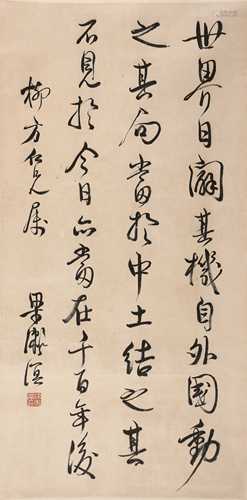 世界日闢其機自外國動
之其局當於中土結之其
不見於今日亦當在千百年後
柳方仁兄属
梁漱溟